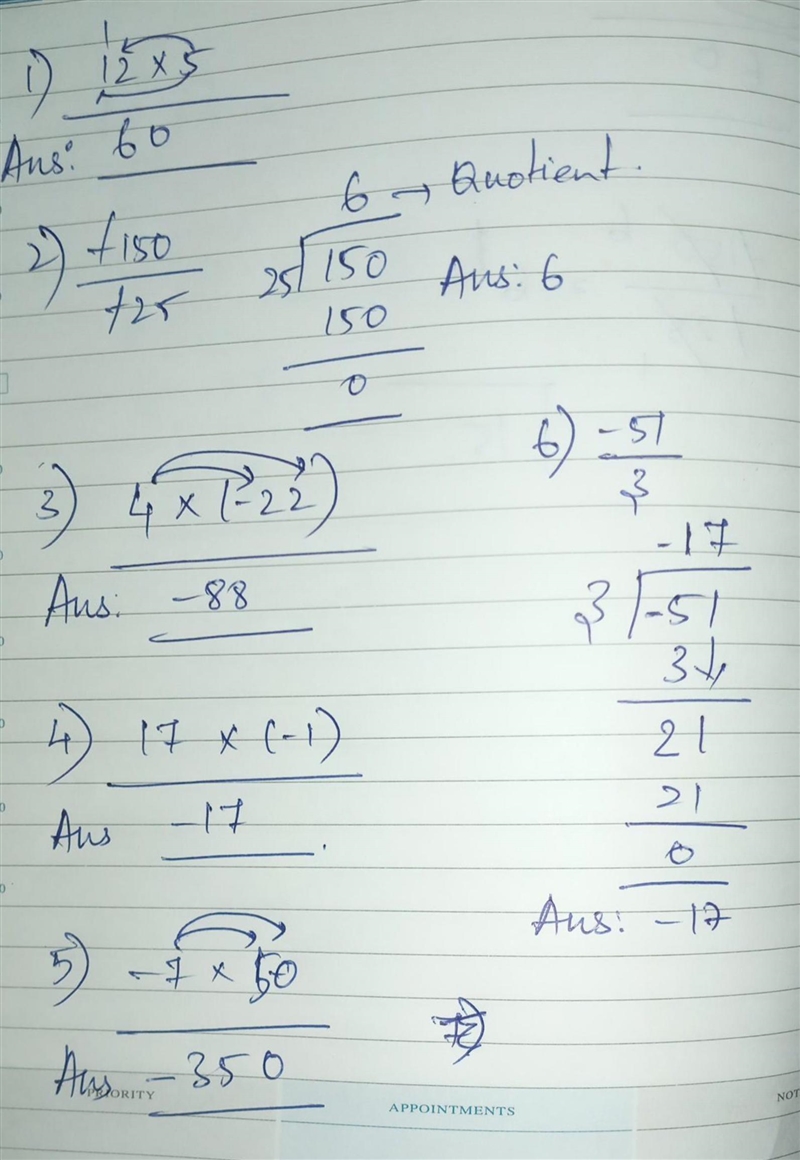 1
1) 12 x 5
Ans: 60
2) +150
+25
6 → Quotient.
25 150
150
0
Ans: 6
3) 4 x (-22)
Ans: -88
4) 17 x (-1)
Ans -17.
5) -7 x 50
Ans -350
6) -51
3
-17
3 -51
3↓
21
21
0
Ans: -17
PRIORITY
APPOINTMENTS
NOT